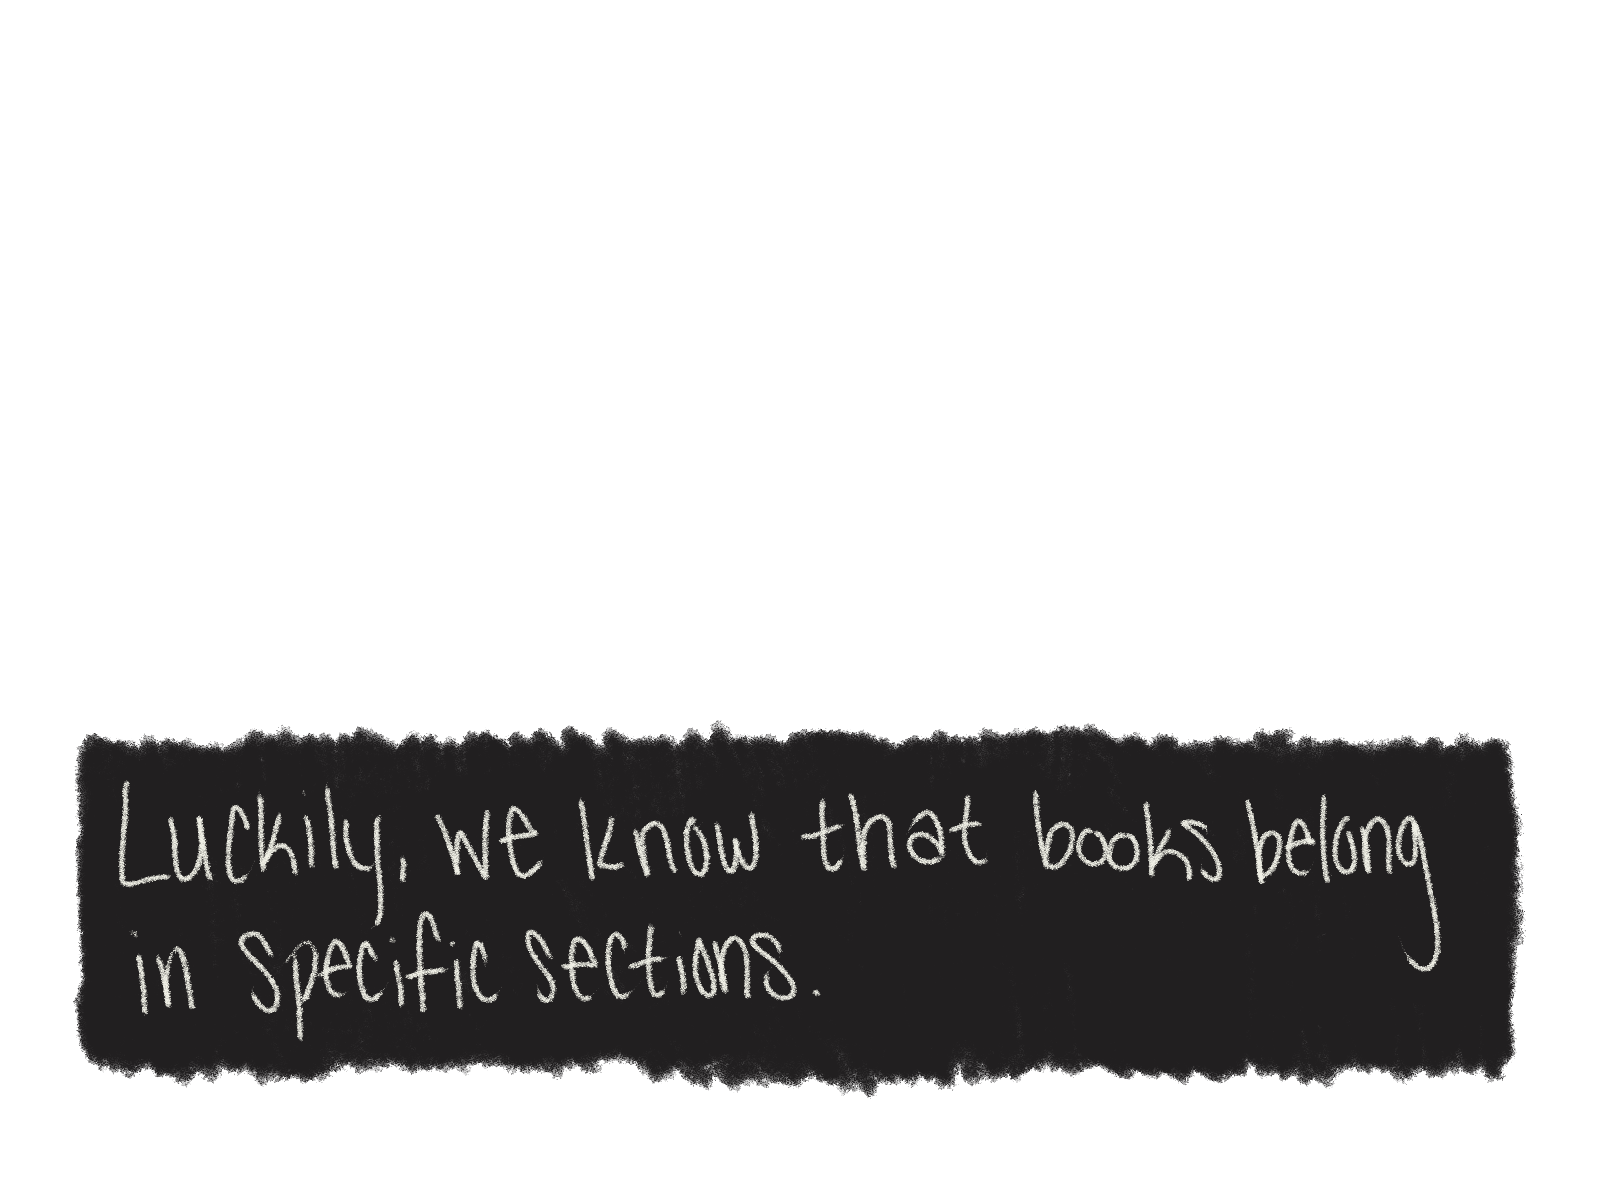 Luckily, we know that books belong
in specific sections.